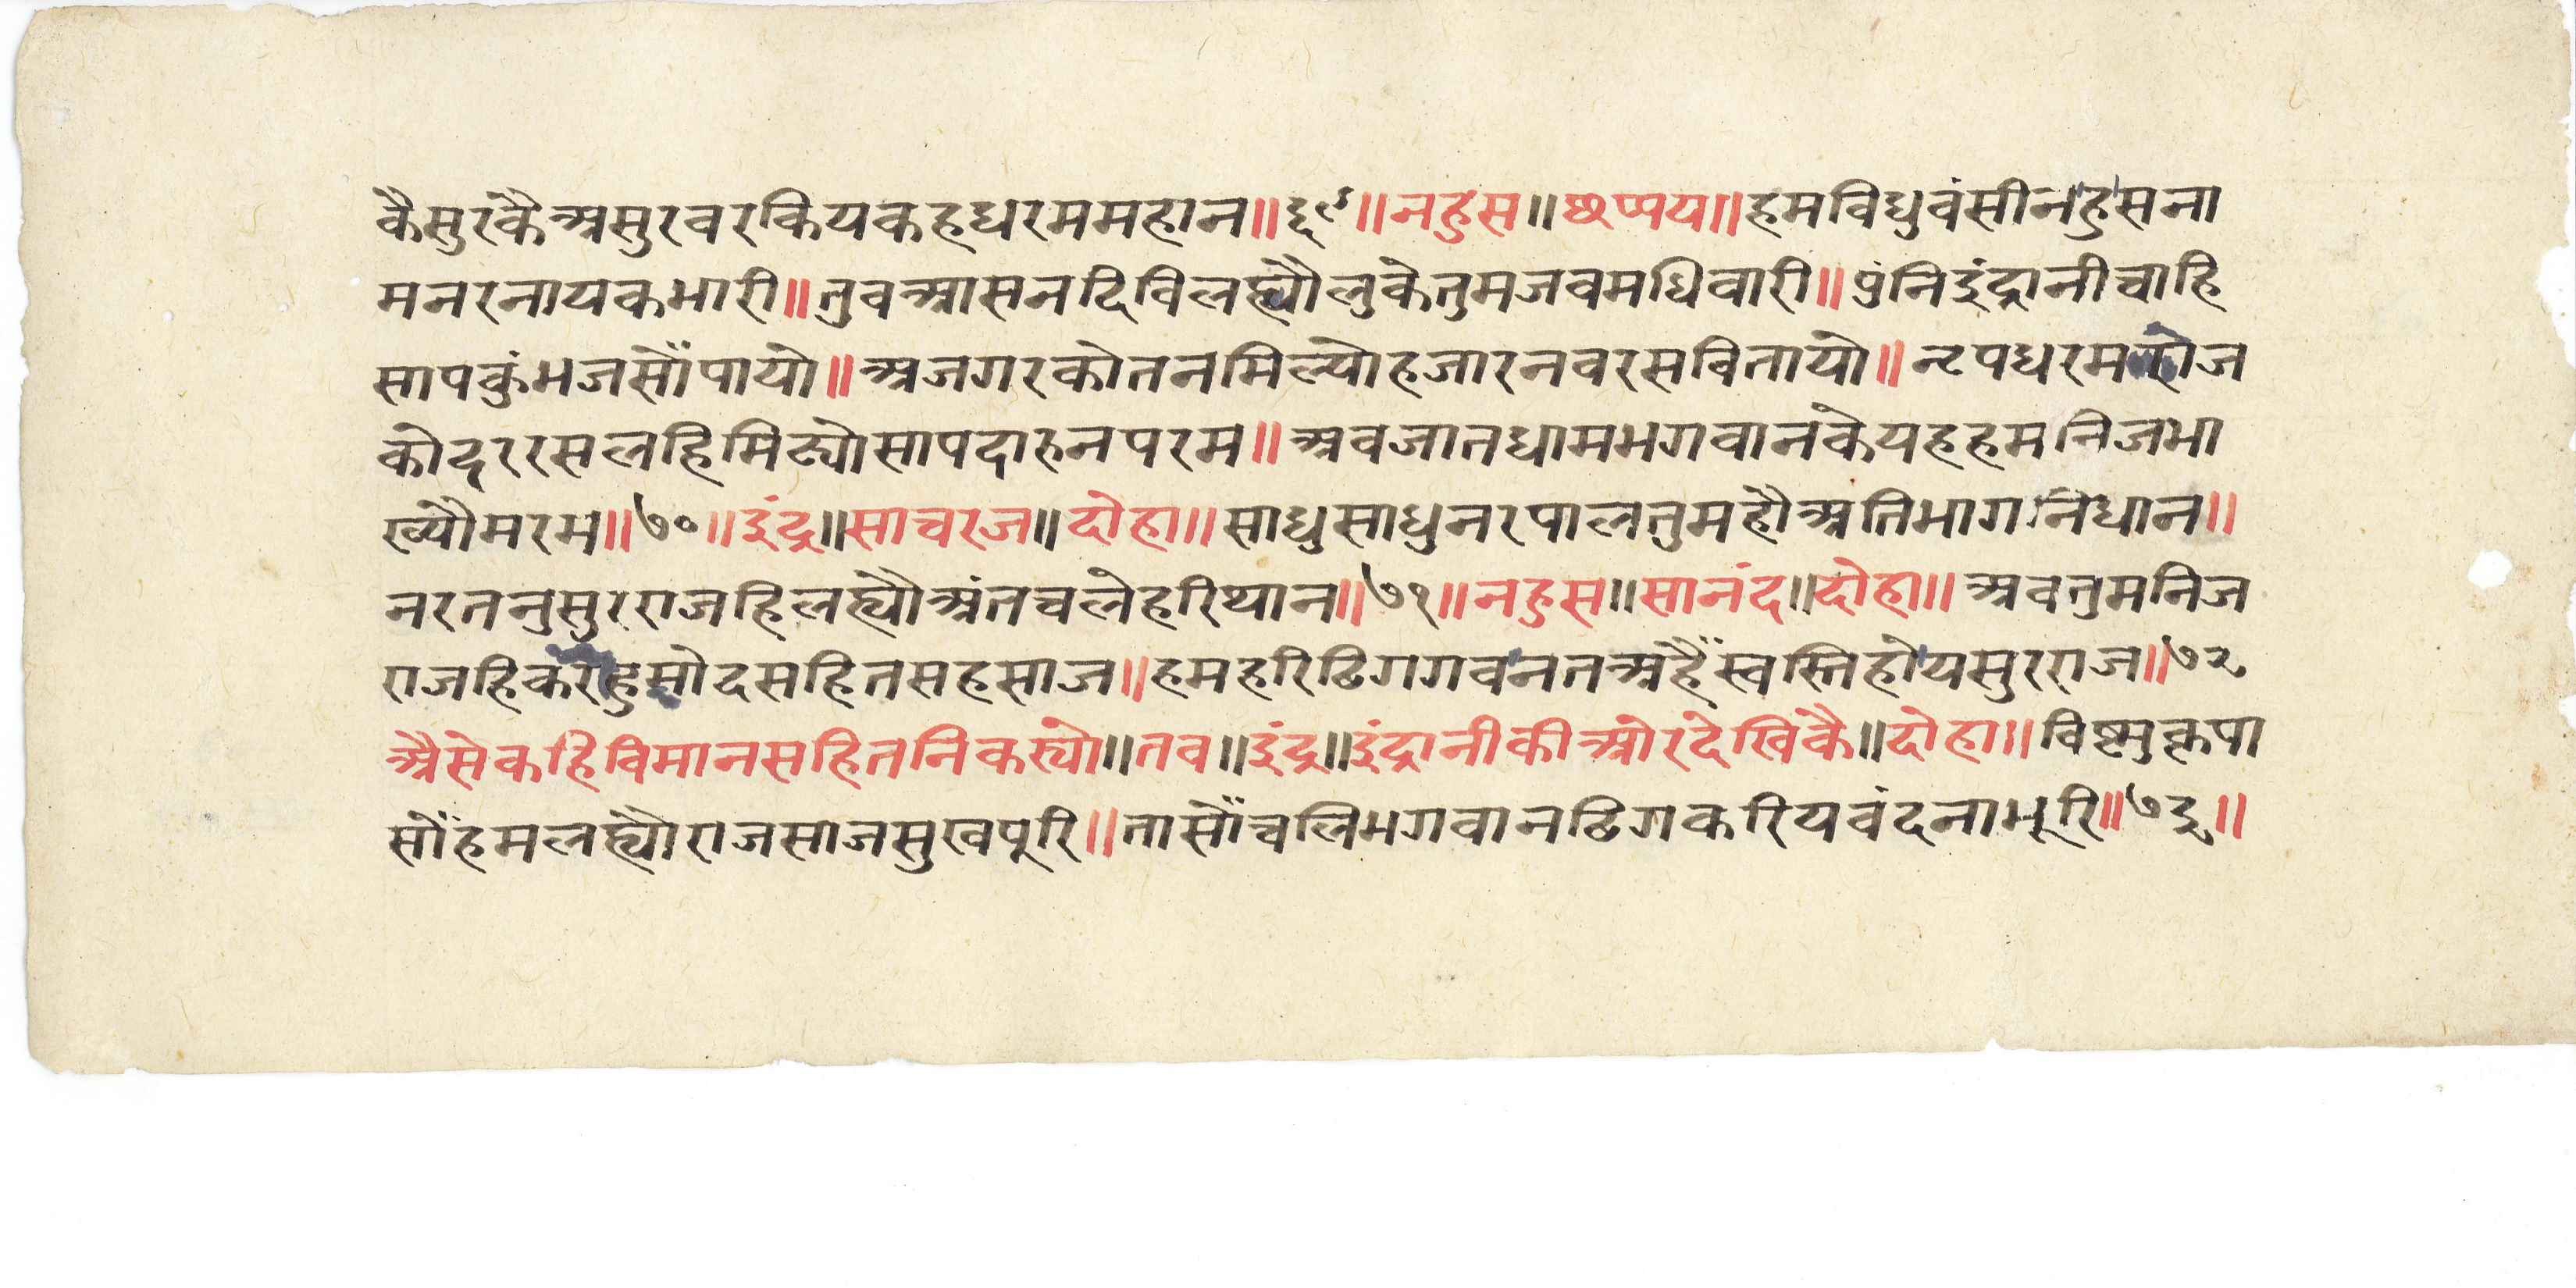 कैसुरकैअसुरवरकियकहधरममहान॥६९॥नहुस॥छप्पय॥हमविधुवंसीनहुसना
मनरनायकभारी॥तुवआसनदिविलह्यौलुकेतुमजवमधिवारी॥पुंनिइंद्रानीचाहि
सापकुंभजसौंपायो॥अजगरकोतनमिल्योहजारनवरसवितायो॥नृपधरमरोज
कोदरसलहिमिट्योसापदारुनपरम॥अवजातधामभगवानकेयहहमनिजभा
ख्यौमरम॥७०॥इंद्र॥साचरज॥दोहा॥साधुसाधुनरपालतुमहौअतिभागनिधान॥
नरतनुसुरराजहिलह्यौअंतचलेहरिथान॥७१॥नहुस॥सानंद॥दोहा॥अवतुमनिज
राजहिकरोहुमोदसहितसहसाज॥हमहरिढिगगवनतअहैंस्वस्तिहोयसुरराज॥७२
अैसेकहिविमानसहितनिकस्यो॥तव॥इंद्र॥इंद्रानीकीओरदेखिकै॥दोहा॥विष्णुकृपा
सोंहमलह्यौराजसाजसुखपूरि॥तासौंचलिभगवानढिगकरियवंदनाभूरि॥७३॥